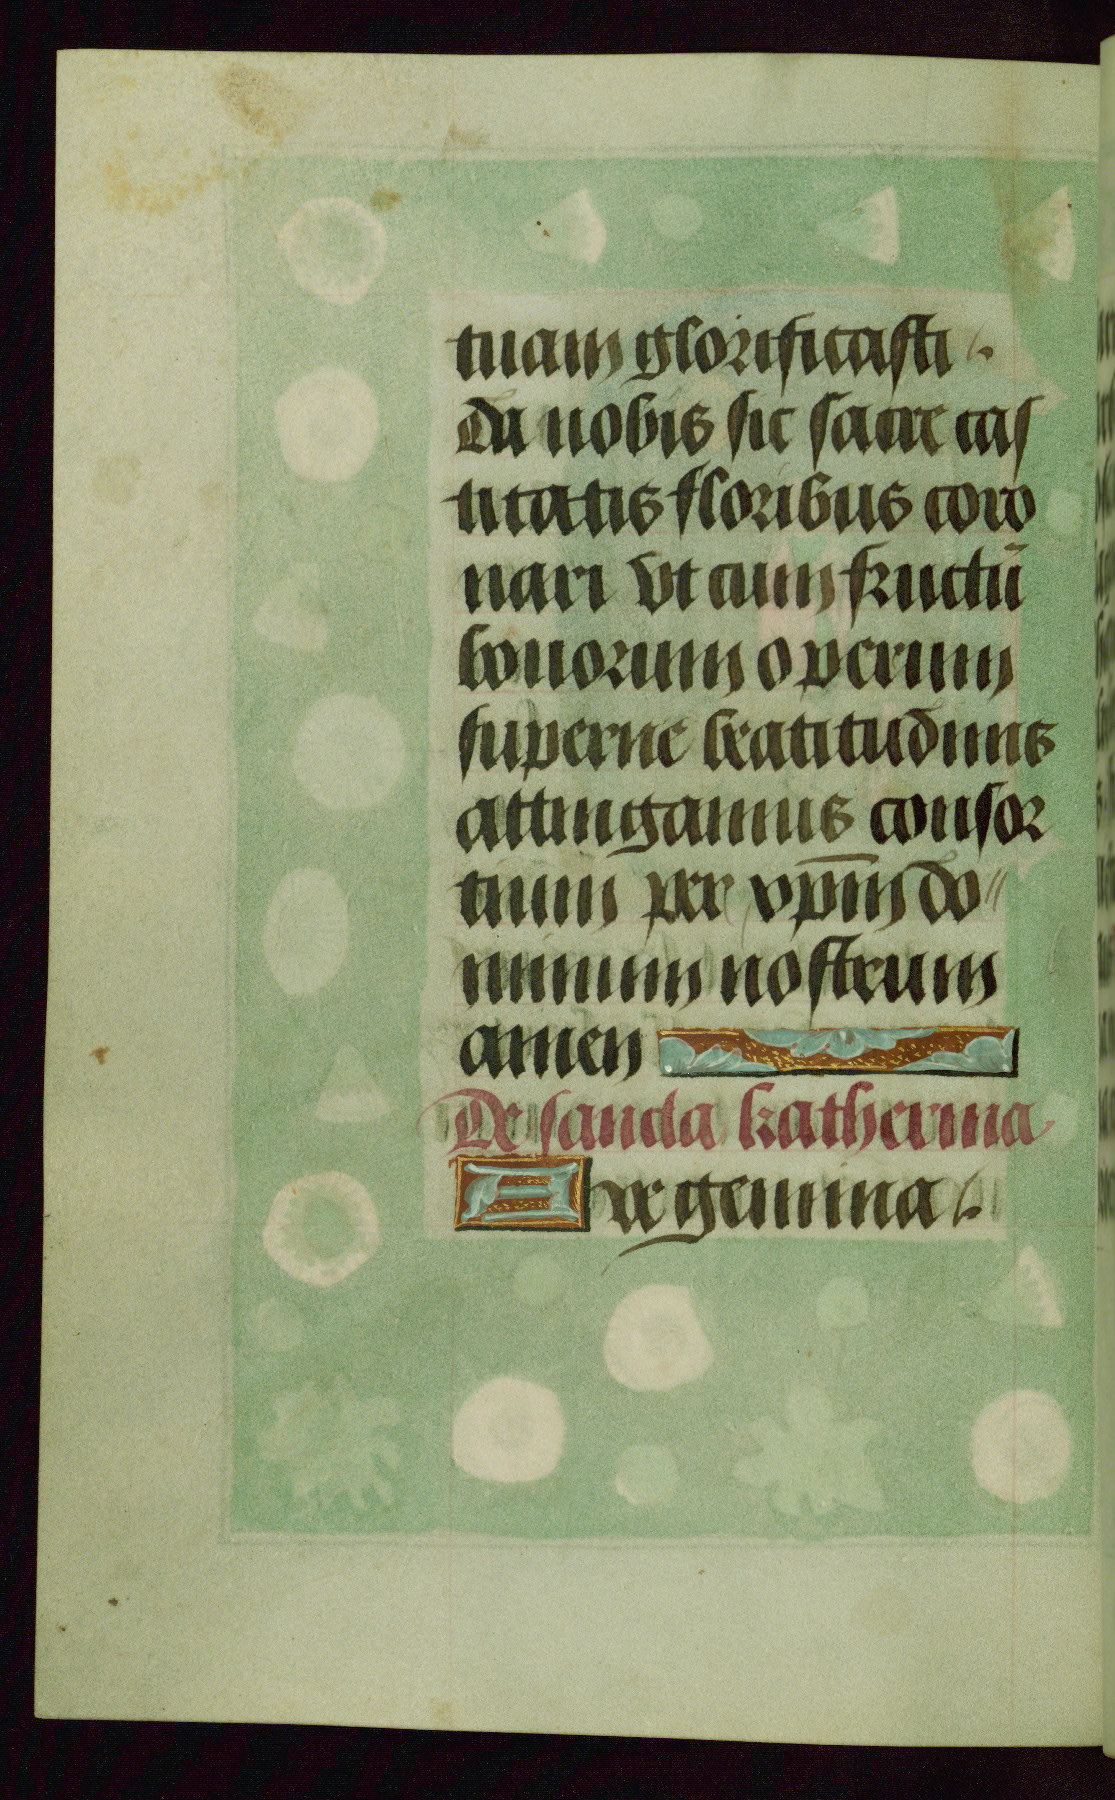 tuam glorificasti
Da nobis sic sacre cas
titatis floribus coro
nari vt cum fructū
bonorum operum
superne beatitudinis
attingamus consor
tium per xp̄m do
minum nostrum
amen
De sancta katherina
Aue gemma